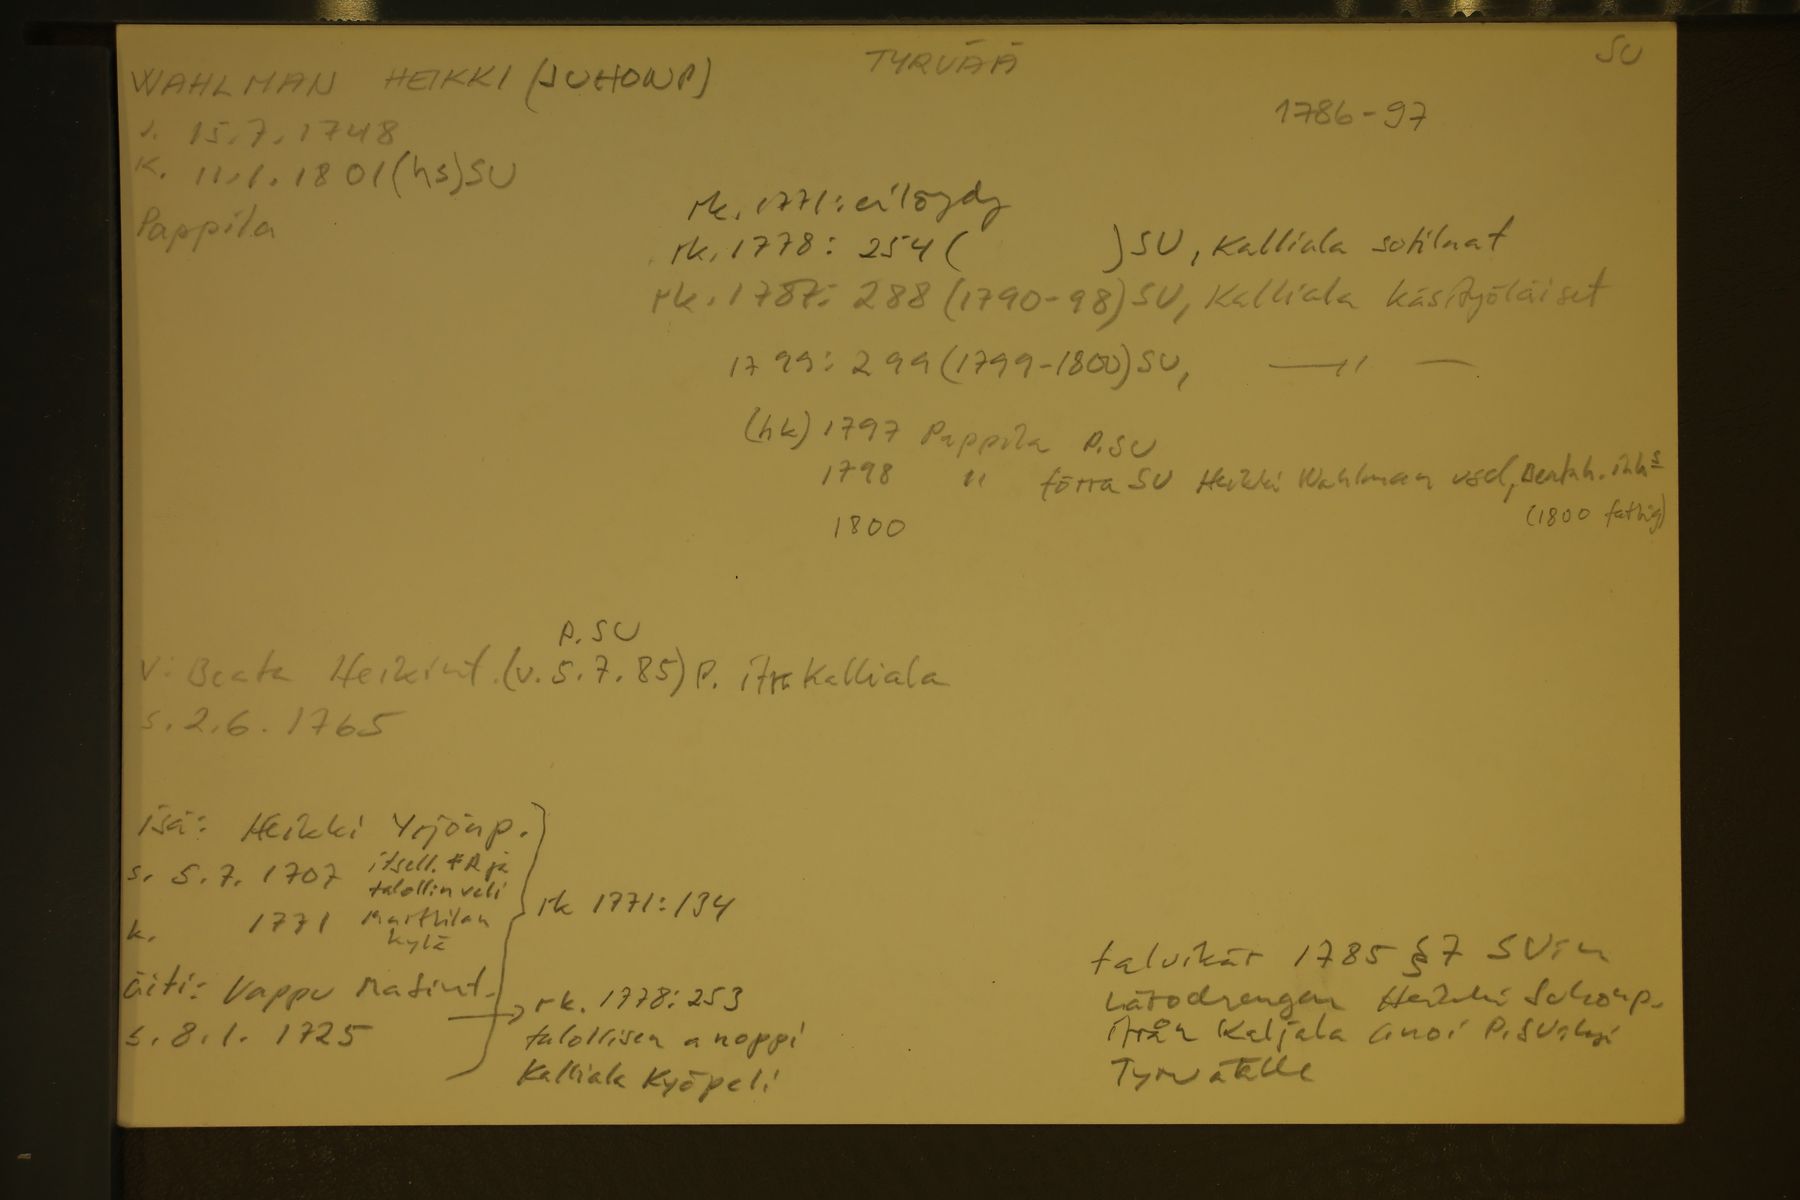 TYRVÄÄ
SU
WAHLMAN HEIKKI (JUHONP)
1786-97
s. 15.7.1748
K. 11.1.1801 (hs) SU
Pappila
rk. 1771: ei löydy
rk. 1778: 254 ( ) SU, Kalliala sotilaat
rk. 1787: 288 (1790-98) SU, Kalliala käsityöläiset
1799: 299 (1799-1800) SU, —〃—
(hk) 1797 Pappila P.SU
1798 〃 förra SU Heikki Wahlman usel, Beata h.
(1800 fattig)
1800
P.SU
V: Beata Heikint. (v. 5.7.85) P. Kalliala
s. 2.6.1765
isä: Heikki Yrjönp.
s. 5.7.1707 itsell. ja
talollin veli
k. 1771 Marttilan
kylä
rk 1771: 134
äiti: Vappu Matint.
s. 8.1.1725
rk. 1778: 253
talollisen anoppi
Kalliala Kyöpeli
talvikär 1785 § 7 SU:n
lärodrengen Heikki Juhonp.
ifrån Kaljala anoi P.SU:ksi
Tyrväälle